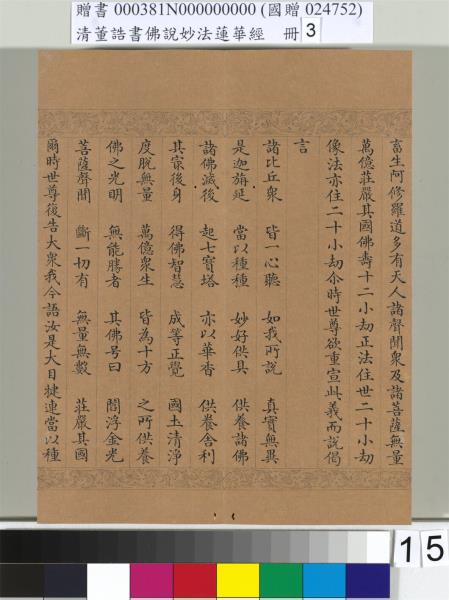 贈書 000381N000000000 (國贈 024752)
清董誥書佛說妙法蓮華經 冊 3
畜生阿修羅道多有天人諸聲聞眾及諸菩薩無量
萬億莊嚴其國佛壽十二小劫正法住世二十小劫
像法亦住二十小劫尒時世尊欲重宣此義而說偈
言
諸比丘眾 皆一心聽 如我所說 真實無異
是迦旃延 當以種種 妙好供具 供養諸佛
諸佛滅後 起七寶塔 亦以華香 供養舍利
其寂後身 得佛智慧 成等正覺 國土清淨
度脫無量 萬億眾生 皆為十方 之所供養
佛之光明 無能勝者 其佛号曰 閻浮金光
菩薩聲聞 斷一切有 無量無數 莊嚴其國
爾時世尊復告大眾我今語汝是大目揵連當以種
15